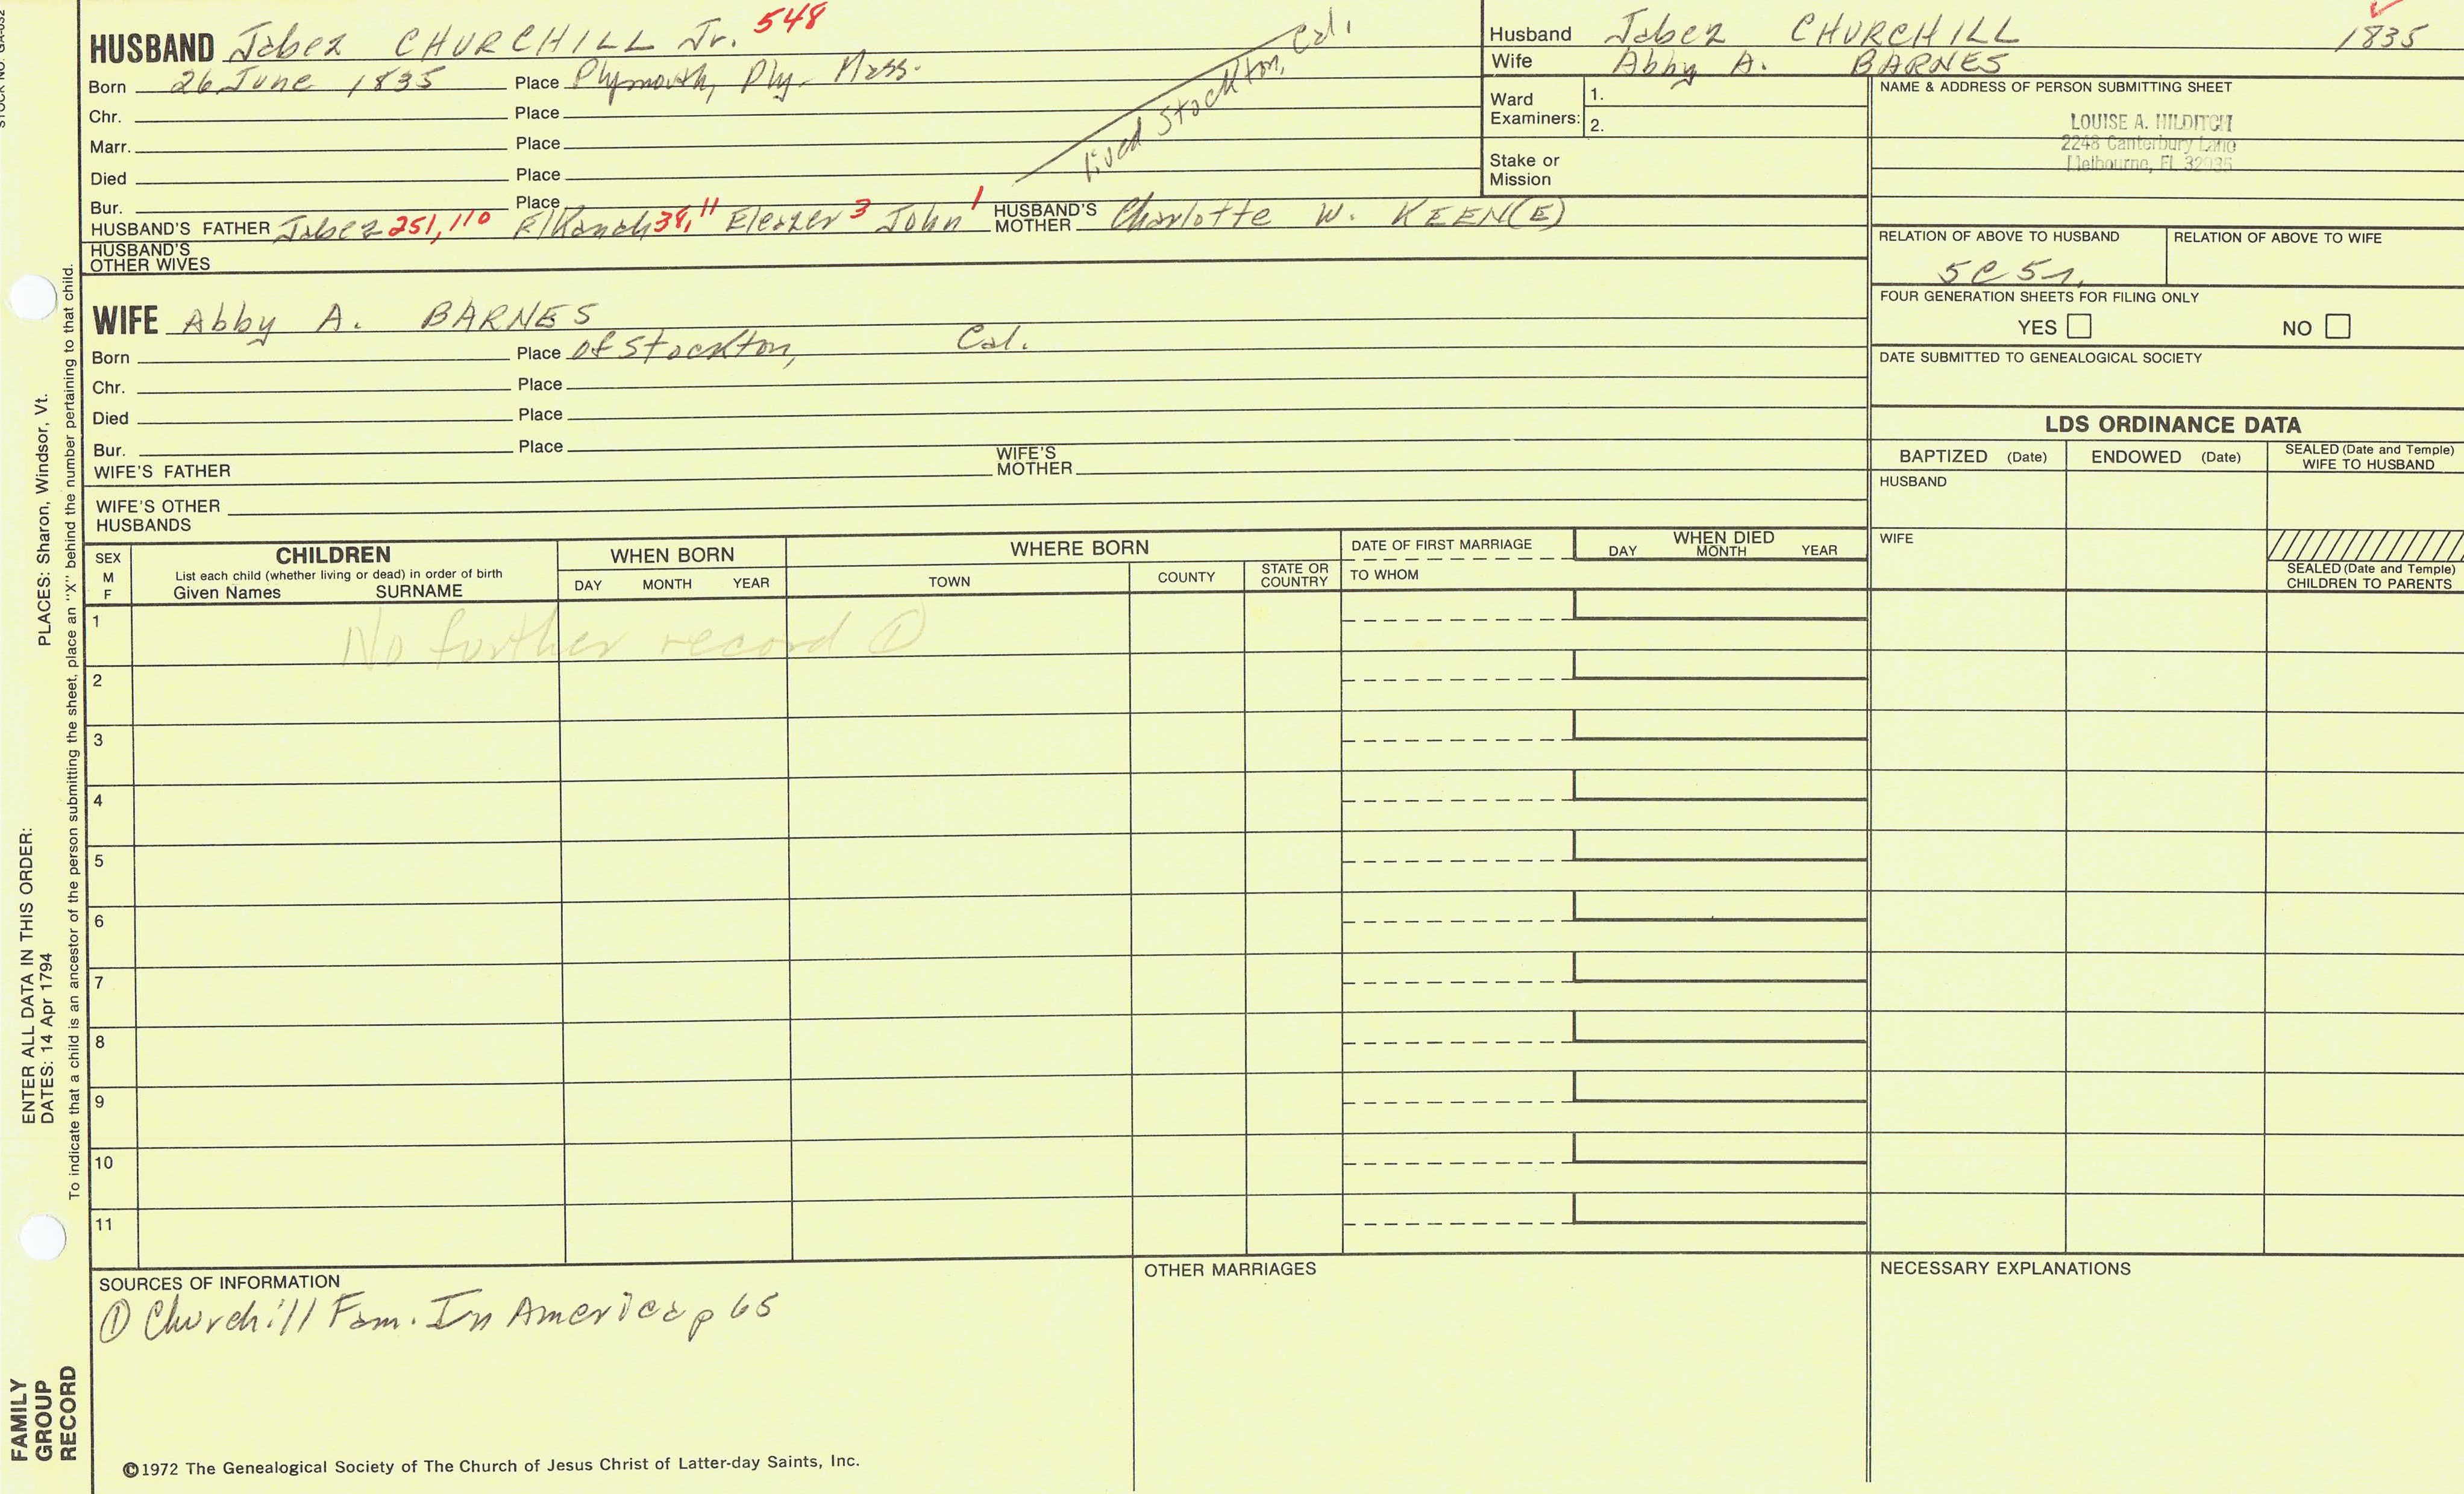 HUSBAND Jabez CHURCHILL Jr. 548
Born 26 June 1835 Place Plymouth, Ply. Mass.
Chr. Place
Marr. Place
Died Place
Bur. Place
lived Stockton, Cal.
HUSBAND'S FATHER Jabez 251, 110 Elkanah 34, 11 Eleazer 3 John 1 HUSBAND'S MOTHER Charlotte W. KEEN(E)
HUSBAND'S OTHER WIVES
WIFE Abby A. BARNES
Born Place of Stockton, Cal.
Chr. Place
Died Place
Bur. Place
WIFE'S FATHER WIFE'S MOTHER
WIFE'S OTHER HUSBANDS
Husband Jabez CHURCHILL 1835
Wife Abby A. BARNES
Ward Examiners: 1.
2.
Stake or Mission
NAME & ADDRESS OF PERSON SUBMITTING SHEET
LOUISE A. HILDITCH
2248 Canterbury Lane
Melbourne, FL 32935
RELATION OF ABOVE TO HUSBAND RELATION OF ABOVE TO WIFE
5C 5r.
FOUR GENERATION SHEETS FOR FILING ONLY
YES NO
DATE SUBMITTED TO GENEALOGICAL SOCIETY
LDS ORDINANCE DATA
BAPTIZED (Date) ENDOWED (Date) SEALED (Date and Temple) WIFE TO HUSBAND
HUSBAND
WIFE
SEALED (Date and Temple) CHILDREN TO PARENTS
SEX M F
CHILDREN
List each child (whether living or dead) in order of birth
Given Names SURNAME
WHEN BORN
DAY MONTH YEAR
WHERE BORN
TOWN COUNTY STATE OR COUNTRY
DATE OF FIRST MARRIAGE
TO WHOM
WHEN DIED
DAY MONTH YEAR
1 No further record ①
2
3
4
5
6
7
8
9
10
11
SOURCES OF INFORMATION
① Churchill Fam. In America p 65
OTHER MARRIAGES
NECESSARY EXPLANATIONS
©1972 The Genealogical Society of The Church of Jesus Christ of Latter-day Saints, Inc.
ENTER ALL DATA IN THIS ORDER:
DATES: 14 Apr 1794 PLACES: Sharon, Windsor, Vt.
To indicate that a child is an ancestor of the person submitting the sheet, place an "X" behind the number pertaining to that child.
FAMILY
GROUP
RECORD